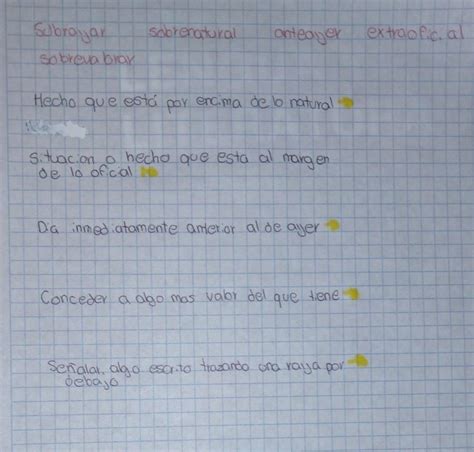 Subrayar sobrenatural anteayer extraoficial
sobrevalorar
Hecho que está por encima de lo natural
situacion o hecho que esta al margen
de lo oficial
Dia inmediatamente anterior al de ayer
Conceder a algo mas valor del que tiene
Señalar algo escrito trazando una raya por
debajo